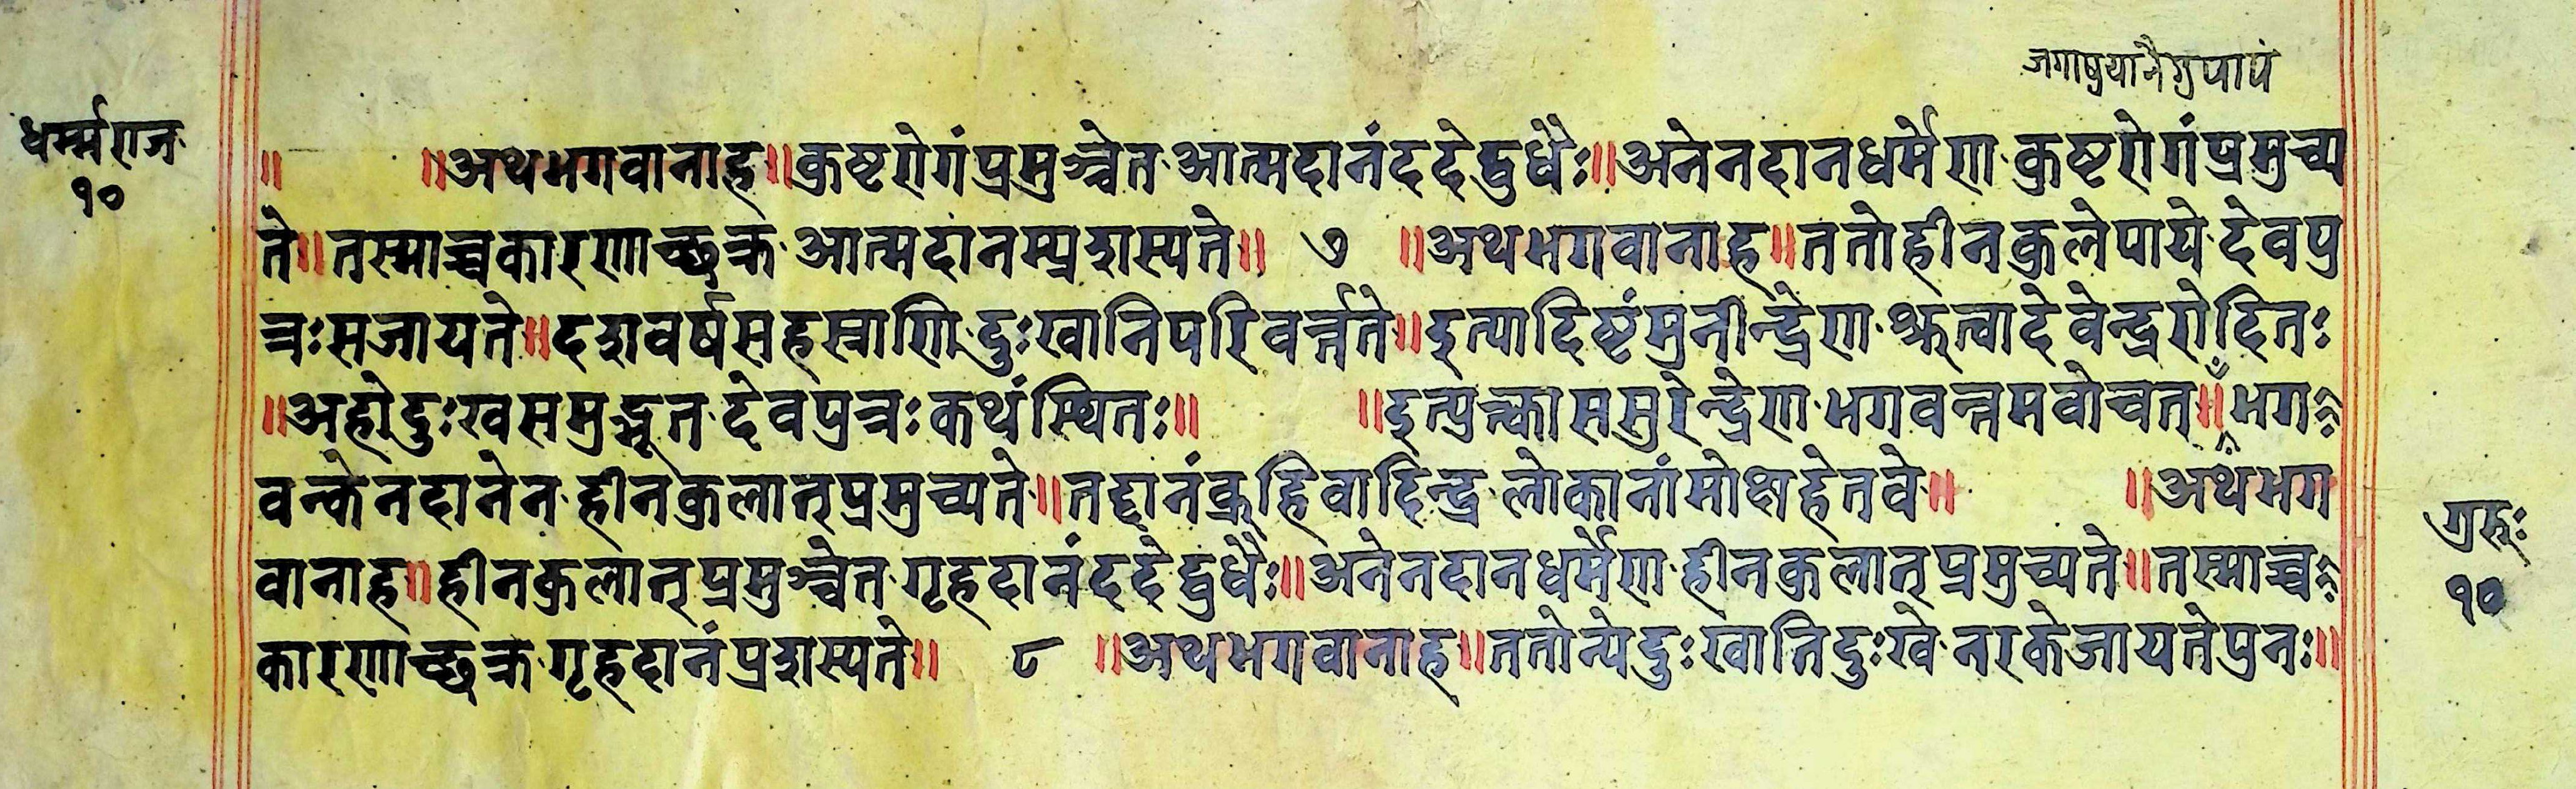 धर्म्मराज
१०
॥ ॥अथभगवानाह॥कुष्टरोगंप्रमुञ्चेत·आत्मदानंददेद्बुधैः॥अनेनदानधर्मेण·कुष्टरोगंप्रमुच्य
ते॥तस्माच्चकारणाच्छक्र·आत्मदानम्प्रशस्यते॥ ७ ॥अथभगवानाह॥ततोहीनकुलेपाये·देवपु
त्रःसजायते॥दशवर्षसहस्राणि·दुःखानिपरिवर्त्तते॥इत्यादिष्टंमुनीन्द्रेण·श्रुत्वादेवेन्द्ररोदितः
॥अहोदुःखसमुद्भूत·देवपुत्रःकथंस्थितः॥ ॥इत्युक्त्वाससुरेन्द्रेण·भगवन्तमवोचत्॥भग
वन्केनदानेन·हीनकुलात्प्रमुच्यते॥तद्दानंब्रूहिवादिन्द्र·लोकानांमोक्षहेतवे॥ ॥अथभग
वानाह॥हीनकुलात्प्रमुञ्चेत·गृहदानंददेद्बुधैः॥अनेनदानधर्मेण·हीनकुलात्प्रमुच्यते॥तस्माच्च
कारणाच्छक्र·गृहदानंप्रशस्यते॥ ८ ॥अथभगवानाह॥ततोन्येदुःखातिदुःखे·नरकेजायतेपुनः॥
गुरुः
१०